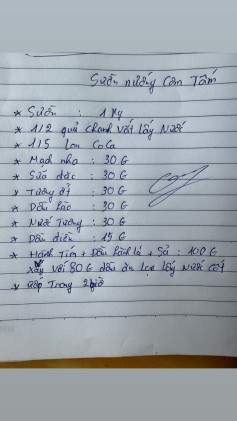 Sườn nướng Cơm Tấm
* Sườn : 1 Kg
* 1/2 quả chanh vắt lấy Nước
* 1/5 lon CoCa
* Mạch nha : 30 G
* Sữa đặc : 30 G
* Tương ớt : 30 G
* Dầu hào : 30 G
* Nước Tương : 30 G
* Dầu điều : 15 G
* Hành Tím + Đầu hành lá + Sả : 100 G
xay với 80 G dầu ăn lọc lấy Nước cốt
* ướp Trong 2 giờ